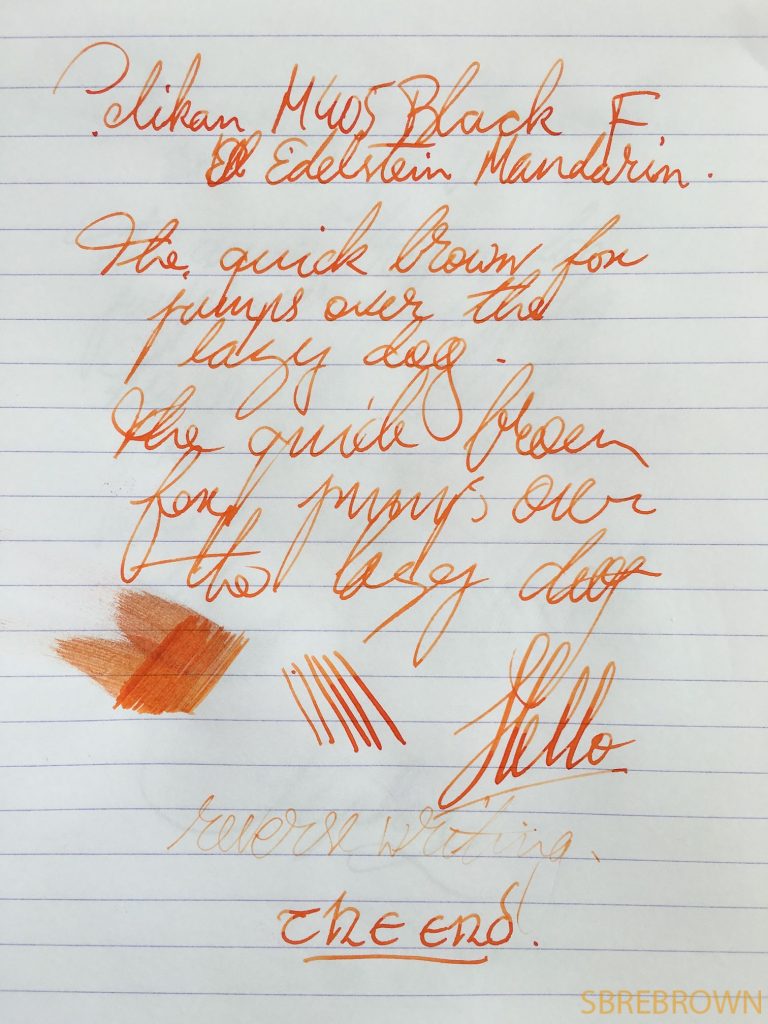 Pelikan M405 Black F
Edelstein Mandarin.
The quick brown fox
jumps over the
lazy dog.
The quick brown
fox jumps over
the lazy dog
Hello
reverse writing.
THE END.
SBREBROWN